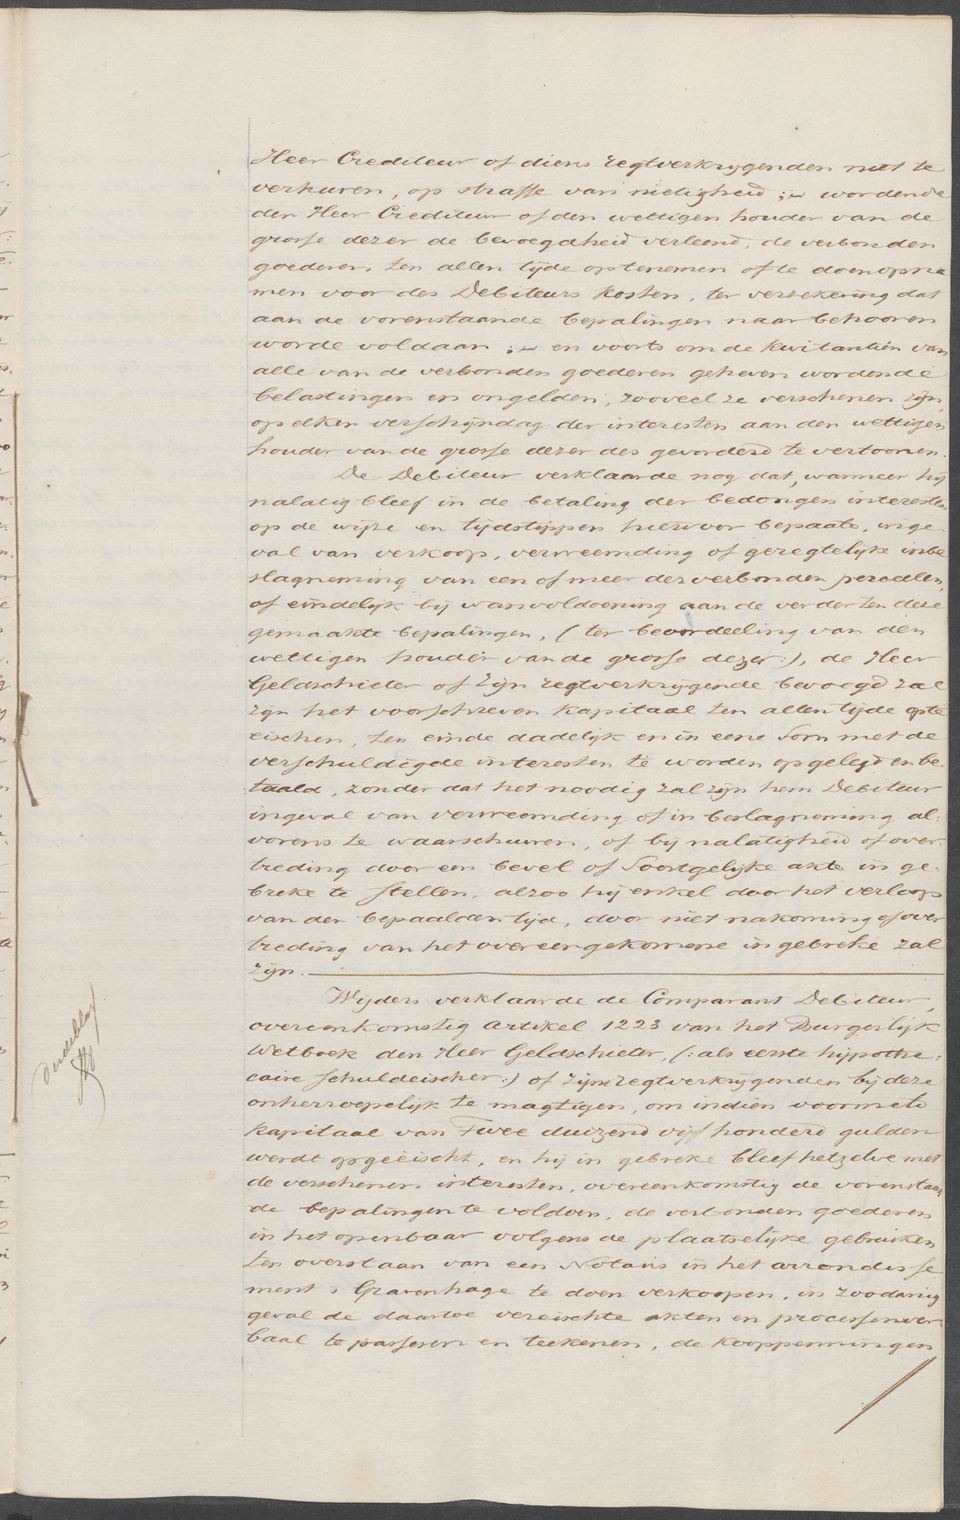 Heer Crediteur of diens regtverkrijgenden niet te
verhuren, op straffe van nietigheid ;- wordende
den Heer Crediteur of den wettigen houder van de
grosse dezer de bevoegdheid verleend, de verbonden
goederen ten allen tijde optenemen of te doen opne
men voor des Debiteurs kosten, ter verzekering dat
aan de vorenstaande bepalingen naar behooren
worde voldaan ;- en voorts om de kwitantiën van
alle van de verbonden goederen geheven wordende
belastingen en ongelden, zooveel ze verschenen zijn,
op elken verschijndag der interesten aan den wettigen
houder van de grosse dezer des gevorderd te vertoonen.
De Debiteur verklaarde nog dat, wanneer hij
nalatig bleef in de betaling der bedongen interesten
op de wijze en tijdstippen hiervoor bepaald, inge-
val van verkoop, vervreemding of geregtelijke inbe
slagneming van een of meer der verbonden perceelen,
of eindelijk bij wanvoldoening aan de verder ten deze
gemaakte bepalingen, (ter beoordeeling van den
wettigen houder van de grosse dezer:), de Heer
Geldschieter of zijn regtverkrijgende bevoegd zal
zijn het voorschreven kapitaal ten allen tijde opte
eischen, ten einde dadelijk en in eene som met de
verschuldigde interesten te worden opgelegd en be-
taald, zonder dat het noodig zal zijn hem Debiteur
ingeval van vervreemding of in beslagneming al:
vorens te waarschuwen, of bij nalatigheid of over-
treding door een bevel of soortgelijke akte in ge-
breke te stellen, alzoo hij enkel door het verloop
van den bepaalden tijd, door niet nakoming of over
treding van het overeengekomene in gebreke zal
zijn.
Wijders verklaarde de Comparant Debiteur,
overeenkomstig artikel 1223 van het Burgerlijk
Wetboek den Heer Geldschieter, (: als eerste hypothe:
caire schuldeischer:) of zijne regtverkrijgenden bij deze
onherroepelijk te magtigen, om indien voormeld
kapitaal van Twee duizend vijf honderd gulden
werdt opgeëischt, en hij in gebreke bleef hetzelve met
de verschenen interesten, overeenkomstig de vorenstaan
de bepalingen te voldoen, de verbonden goederen
in het openbaar volgens de plaatselijke gebruiken
ten overstaan van een Notaris in het arrondisse
ment s Gravenhage te doen verkoopen, in zoodanig
geval de daartoe vereischte akten en processenver
baal te passeren en teekenen, de kooppenningen
Derdeblad